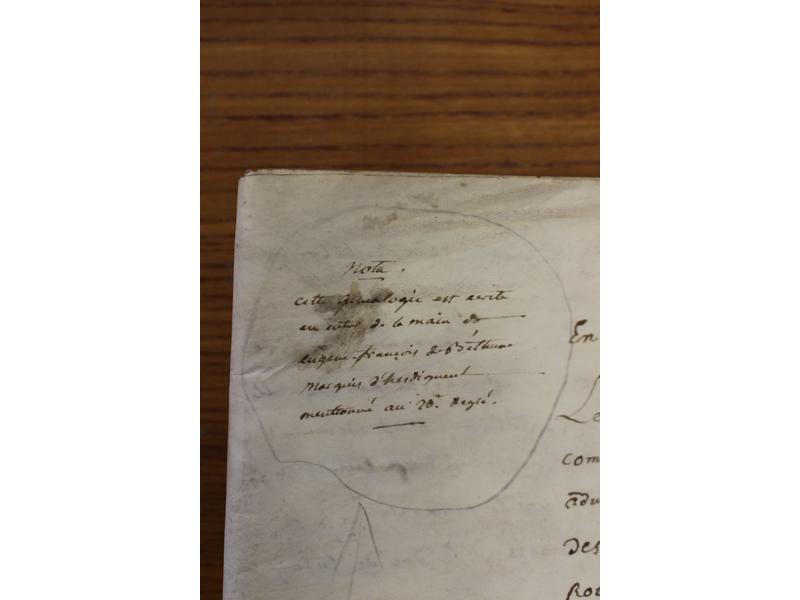 Nota.
cette genealogie est ecrite
en entier de la main de
eugene-françois de Béthune
marquis d'hesdigneul
mentionné au 20e. degré.
En
Le
com
adv
des
Rol